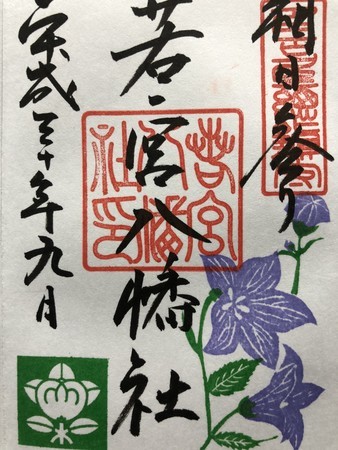 朔日参り
若宮八幡社
平成三十年九月
若宮
八幡
社印